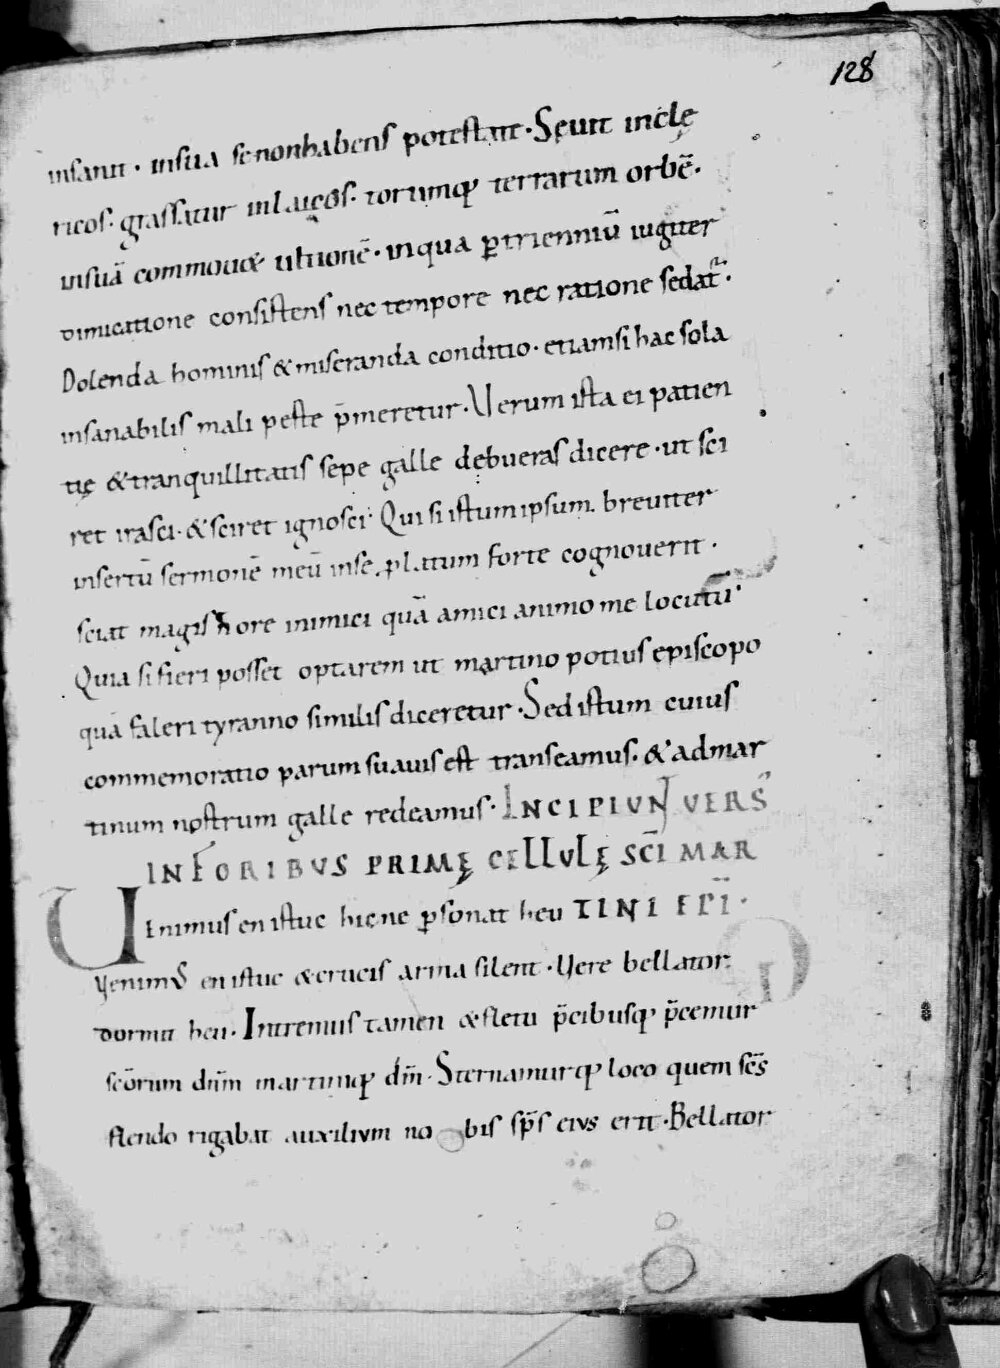 128
insanit · insua se nonhabens potestate · Seuit incle
ricos · grassatur inlaicos · totumq; terrarum orbē ·
insuā commouet ultionē · inqua ptrienniū iugiter
dimicatione consistens nec tempore nec ratione sedatr ·
Dolenda hominis & miseranda conditio · etiamsi hac sola
insanabilis mali peste p̄meretur · Verum ista ei patien
tię & tranquillitatis sepe galle debueras dicere · ut sci
ret irasci · & sciret ignosci · Qui si istum ipsum breuiter
insertū sermonē meū inse platum forte cognouerit ·
sciat magis hore inimici quā amici animo me locutū ·
Quia si fieri posset optarem ut martino potius episcopo
quā faleri tyranno similis diceretur · Sed istum cuius
commemoratio parum suauis est transeamus · & admar
tinum nostrum galle redeamus · INCIPIUNT VERS
IN FORIBVS PRIMĘ CELLVLĘ SCĪ MAR
Uenimus en istuc hicne psonat heu TINI EPĪ ·
Venim' en istuc & crucis arma silent · Vere bellator
dormit heu · Intremus tamen & fletu p̄cibusq; p̄cemur
scōrum dn̄m martiniq; dm̄ · Sternamurq; loco quem scs̄
flendo rigabat auxilivm no bis sps̄ eivs erit · Bellator